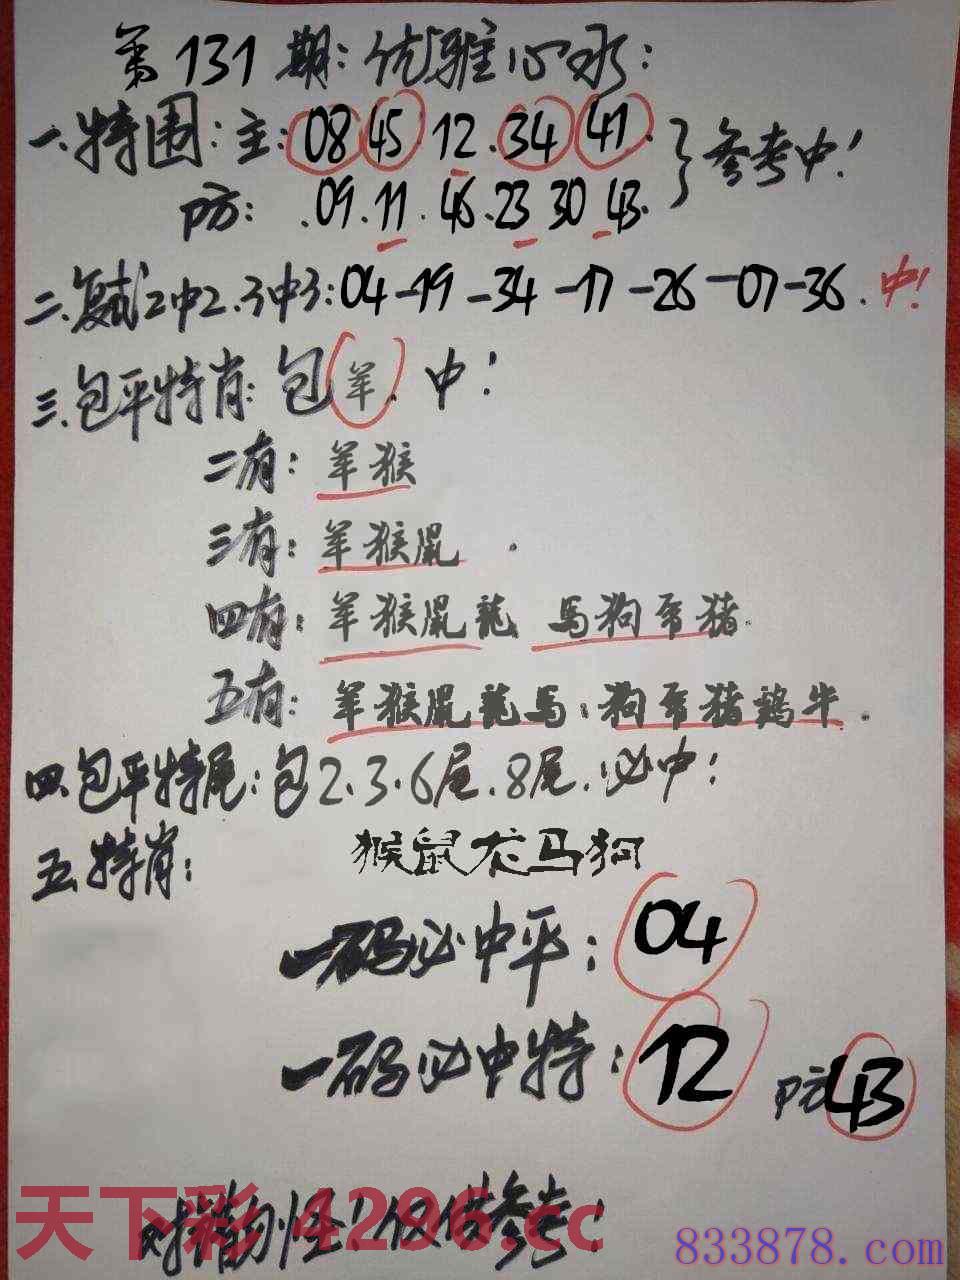 第131期:优雅心水:
一.特围:主:08 45·12·34 41·}参考中!
防:.09.11.46.23 30 43.
二.复试2中2.3中3:04-19-34-17-26-07-36.中!
三.包平特肖:包羊.中!
二有:羊猴
三有:羊猴鼠.
四有:羊猴鼠龍 馬狗兔猪.
五有:羊猴鼠龍馬.狗兔猪鷄牛.
四.包平特尾:包2.3.6尾.8尾.必中!
五.特肖:猴鼠龙马狗
一码必中平:04
一码必中特:12 防43
天下彩 4296.cc
对错勿怪!仅供参考!
833878.com